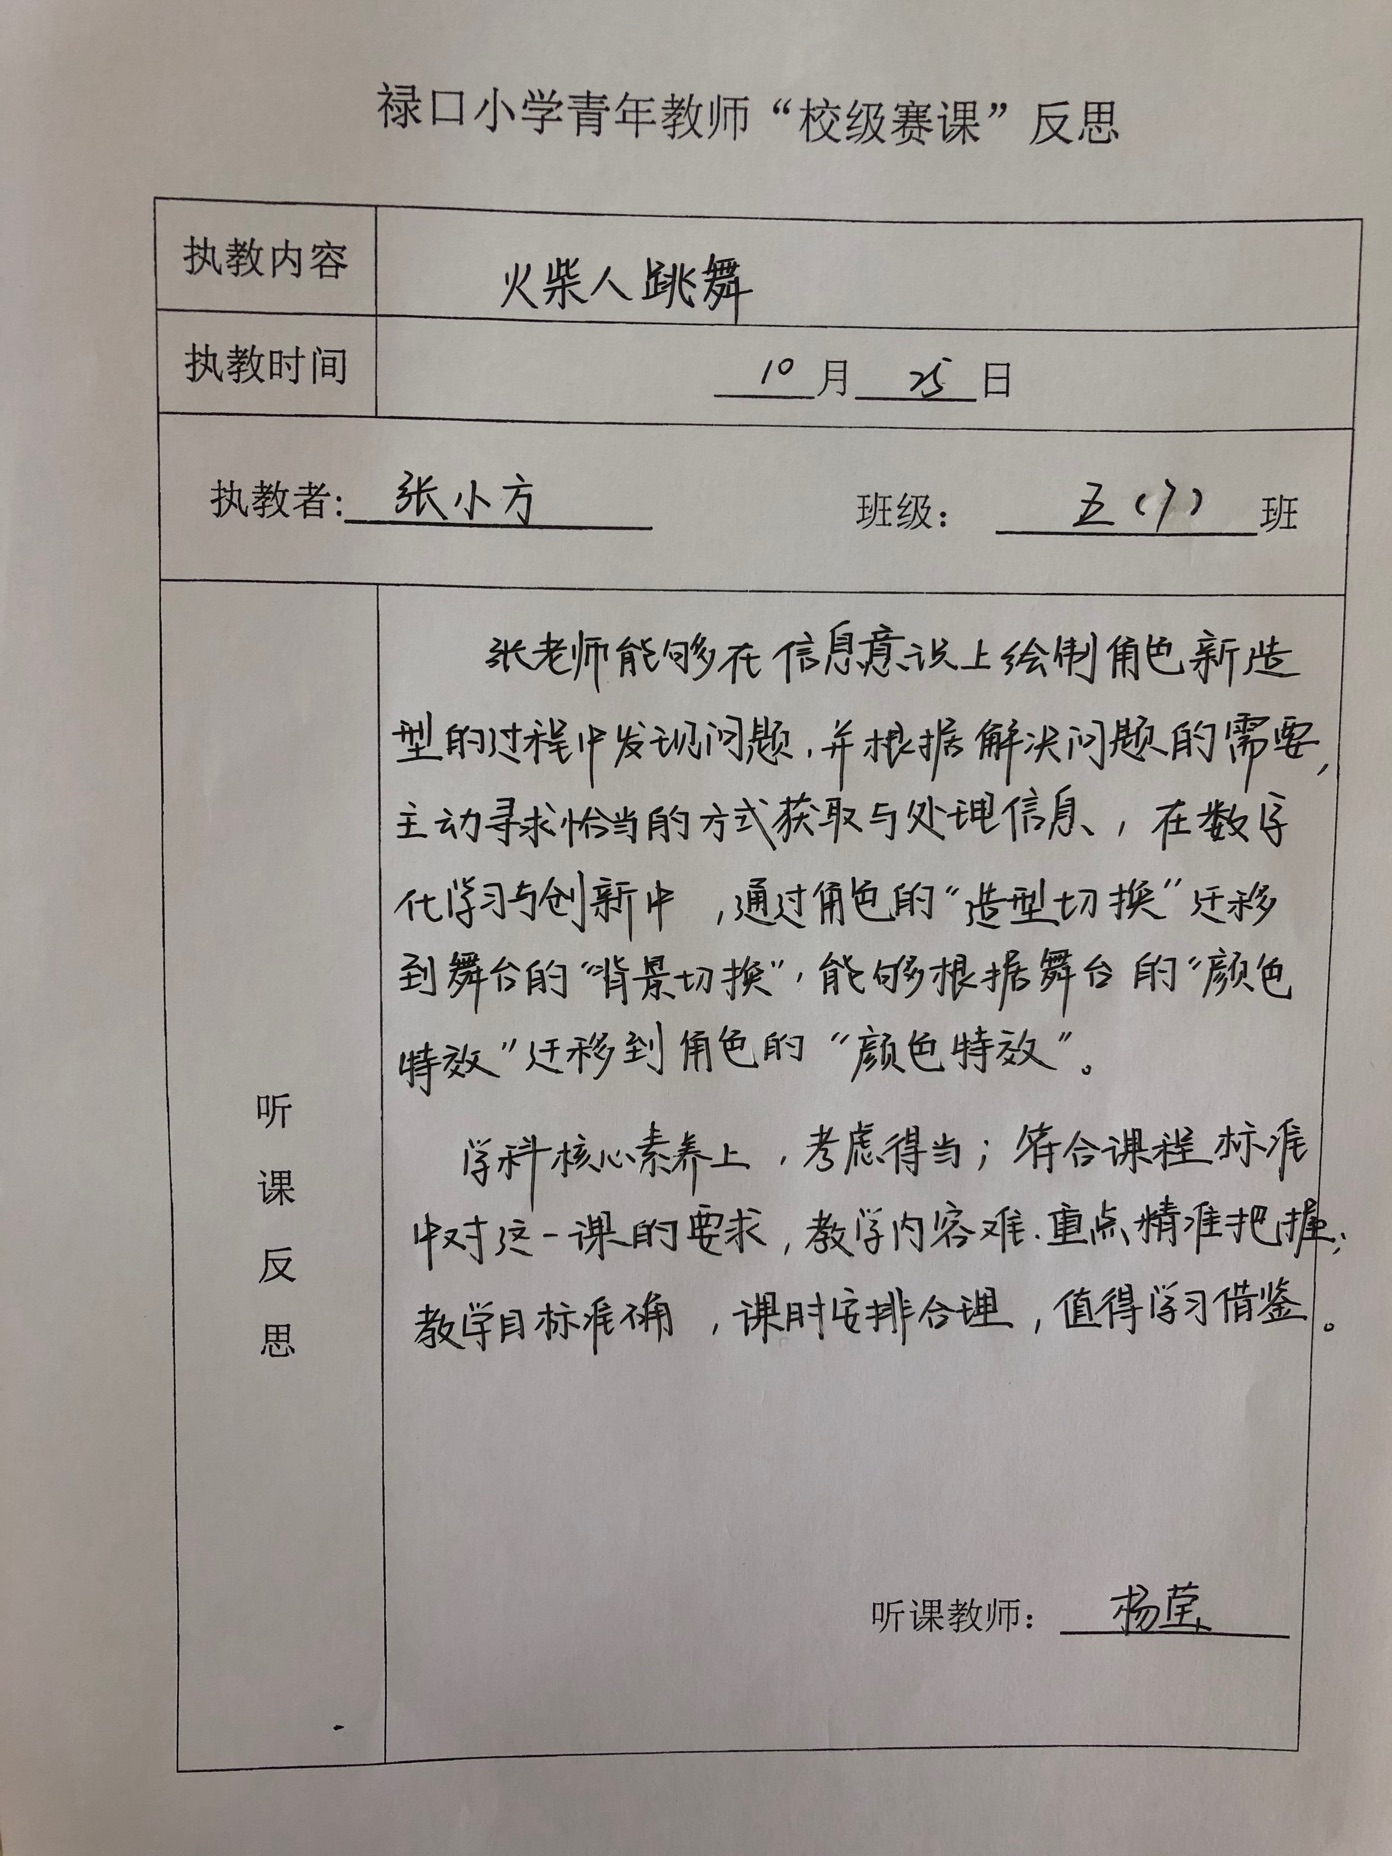 禄口小学青年教师“校级赛课”反思
执教内容
火柴人跳舞
执教时间
10月25日
执教者:张小方 班级：五(7)班
听课反思
张老师能够在信息意识上绘制角色新造
型的过程中发现问题，并根据解决问题的需要，
主动寻求恰当的方式获取与处理信息、，在数字
化学习与创新中，通过角色的“造型切换”迁移
到舞台的“背景切换”，能够根据舞台的“颜色
特效”迁移到角色的“颜色特效”。
学科核心素养上，考虑得当；符合课程标准
中对这一课的要求，教学内容难.重点精准把握；
教学目标准确，课时安排合理，值得学习借鉴。
听课教师：杨莹